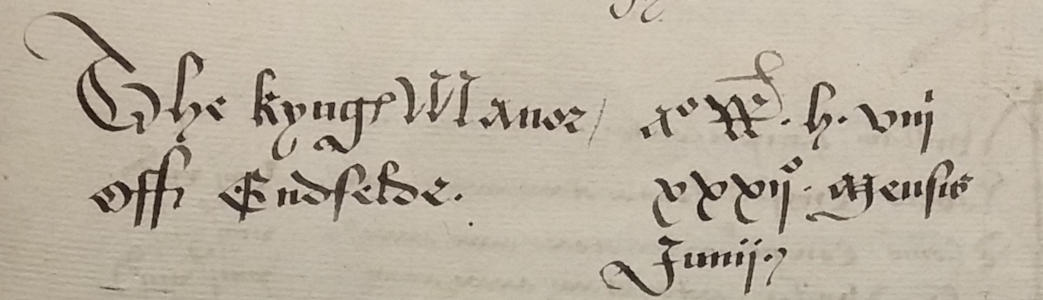 The kynges Manor / aº RR. h. viij
off Endfelde. xxxijº. Mensis
Junij.